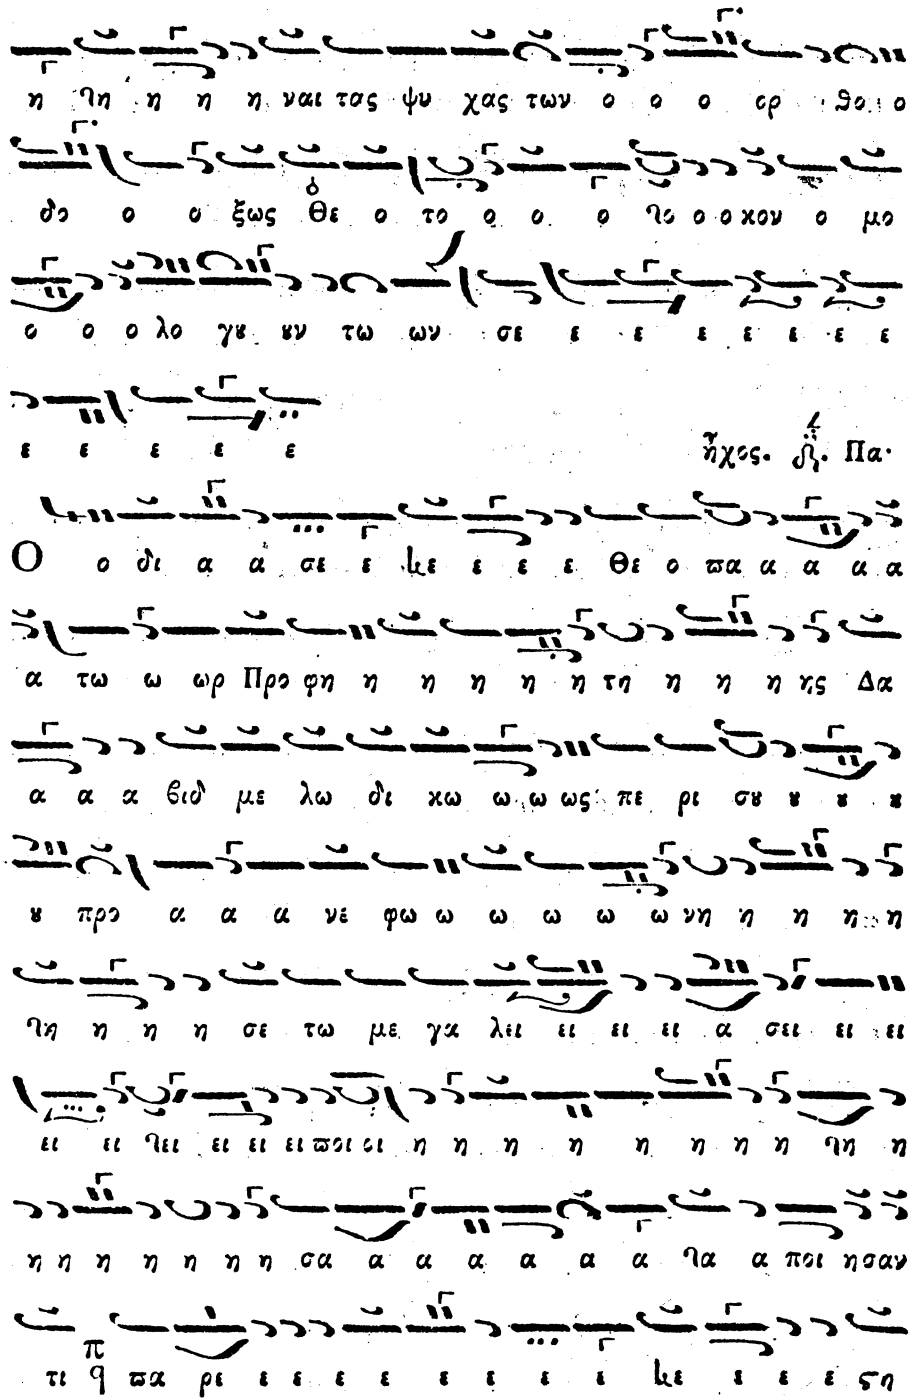 η τη η η η ναι τας ψυ χας των ο ο ο ορ θο ο
δο ο ο ξως Θε ο το ο ο ο το ο ο κον ο μο
ο ο ο λο γȣ ȣν τω ων σε ε ε ε ε ε ε ε
ε ε ε ε ε ἦχος. Πα·
Ο ο δι α α σε ε κε ε ε ε Θε ο πα α α α α
α τω ω ωρ Προ φη η η η η η τη η η η ης Δα
α α α βιδ με λω δι κω ω ω ως πε ρι σȣ ȣ ȣ ȣ
ȣ προ α α α νε φω ω ω ω ω ω νη η η η η
τη η η η σε τω με γα λει ει ει ει α σει ει ει
ει ει τει ει ει ει ποι οι η η η η η η η η τη η
η η η η η η η σα α α α α α α τα α ποι η σαν
τι π q πα ρι ε ε ε ε ε ε ε κε ε ε ε ϛη